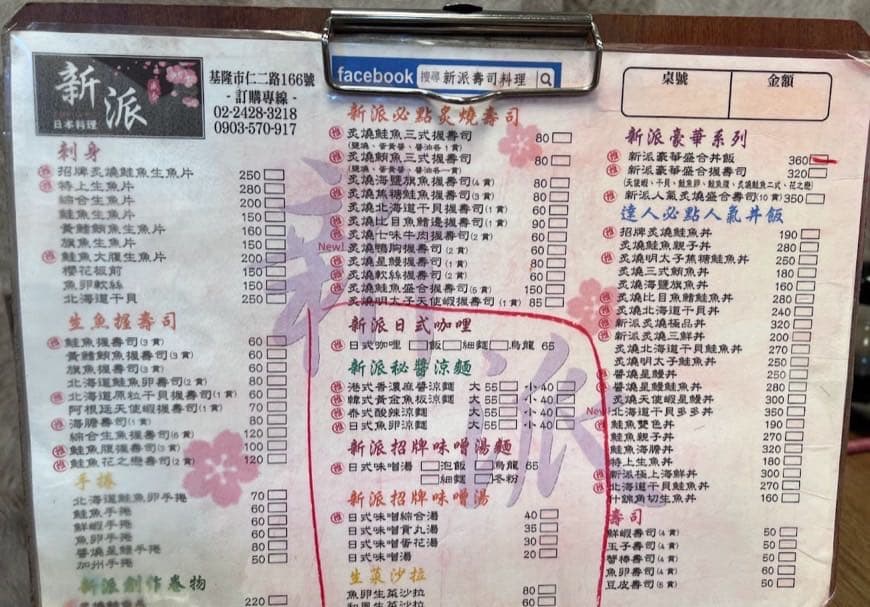 新派
日本料理
基隆市仁二路166號
- 訂購專線 -
02-2428-3218
0903-570-917
刺身
推 招牌炙燒鮭魚生魚片 250
推 特上生魚片 280
綜合生魚片 200
鮭魚生魚片 150
黃鰭鮪魚生魚片 160
旗魚生魚片 150
推 鮭魚大腹生魚片 200
櫻花板前 150
魚卵軟絲 150
北海道干貝 250
生魚握壽司
推 鮭魚握壽司(3貫) 60
黃鰭鮪魚握壽司(3貫) 60
旗魚握壽司(3貫) 60
北海道鮭魚卵壽司(2貫) 80
推 北海道原粒干貝握壽司(1貫) 60
阿根廷天使蝦握壽司(1貫) 70
推 海膽壽司(1貫) 80
綜合生魚握壽司(6貫) 120
推 鮭魚腹握壽司(3貫) 100
推 鮭魚花之戀壽司(2貫) 120
手捲
北海道鮭魚卵手捲 70
鮭魚手捲 60
鮮蝦手捲 60
魚卵手捲 60
醬燒星鰻手捲 80
加州手捲 50
新派創作卷物
220
facebook 搜尋 新派壽司料理
新派必點炙燒壽司
推 炙燒鮭魚三式握壽司 80
(鹽燒、蛋黃醬、醬油各1貫)
推 炙燒鮪魚三式握壽司 80
(鹽燒、蛋黃醬、醬油各一貫)
炙燒海鹽旗魚握壽司(4貫) 80
推 炙燒焦糖鮭魚握壽司(3貫) 80
推 炙燒北海道干貝握壽司(1貫) 60
推 炙燒比目魚鰭邊握壽司(1貫) 90
推 炙燒七味牛肉握壽司(2貫) 80
New! 炙燒鴨胸握壽司(2貫) 60
推 炙燒星鰻握壽司(1貫) 80
推 炙燒軟絲握壽司(2貫) 60
推 炙燒鮭魚盛合握壽司(5貫) 150
炙燒明太子天使蝦握壽司(1貫) 85
新派日式咖哩
推 日式咖哩 飯 細麵 烏龍 65
新派秘醬涼麵
推 港式香濃麻醬涼麵 大 55 小 40
推 韓式黃金魚板涼麵 大 55 小 40
推 泰式酸辣涼麵 大 55 小 40
推 日式魚卵涼麵 大 55 小 40
新派招牌味噌湯麵
推 日式味噌湯 泡飯 烏龍 65
細麵 冬粉
新派招牌味噌湯
推 日式味噌綜合湯 40
日式味噌貢丸湯 35
日式味噌蛋花湯 30
日式味噌湯 20
生菜沙拉
魚卵生菜沙拉 80
和風生菜沙拉 60
桌號 金額
新派豪華系列
推 新派豪華盛合丼飯 360
推 新派豪華盛合握壽司 320
(天使蝦、干貝、鮭魚卵、鮭魚腹、炙燒鮭魚二式、花之戀)
推 新派人氣炙燒盛合壽司(10貫) 350
達人必點人氣丼飯
推 招牌炙燒鮭魚丼 190
炙燒鮭魚親子丼 280
推 炙燒明太子焦糖鮭魚丼 250
炙燒三式鮪魚丼 180
炙燒海鹽旗魚丼 160
推 炙燒比目魚鰭鮭魚丼 280
推 炙燒北海道干貝丼 240
推 新派炙燒極品丼 320
推 新派炙燒三鮮丼 200
北海道干貝鮭魚丼 270
炙燒明太子鮭魚丼 220
推 醬燒星鰻丼 250
推 醬燒星鰻鮭魚丼 280
炙燒天使蝦星鰻丼 300
New! 北海道干貝多多丼 350
推 鮭魚雙色丼 190
鮭魚親子丼 270
鮭魚海膽丼 320
特上生魚丼 180
推 新派極上海鮮丼 320
推 北海道干貝鮭魚丼 270
什錦角切生魚丼 160
壽司
鮮蝦壽司(4貫) 50
玉子壽司(4貫) 50
蟹棒壽司(4貫) 50
魚卵壽司(4貫) 50
豆皮壽司(5貫) 50